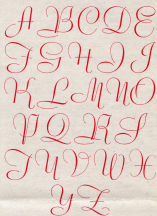 A B C D E
F G H I J
K L M N O
P Q R S
T U V W X
Y Z